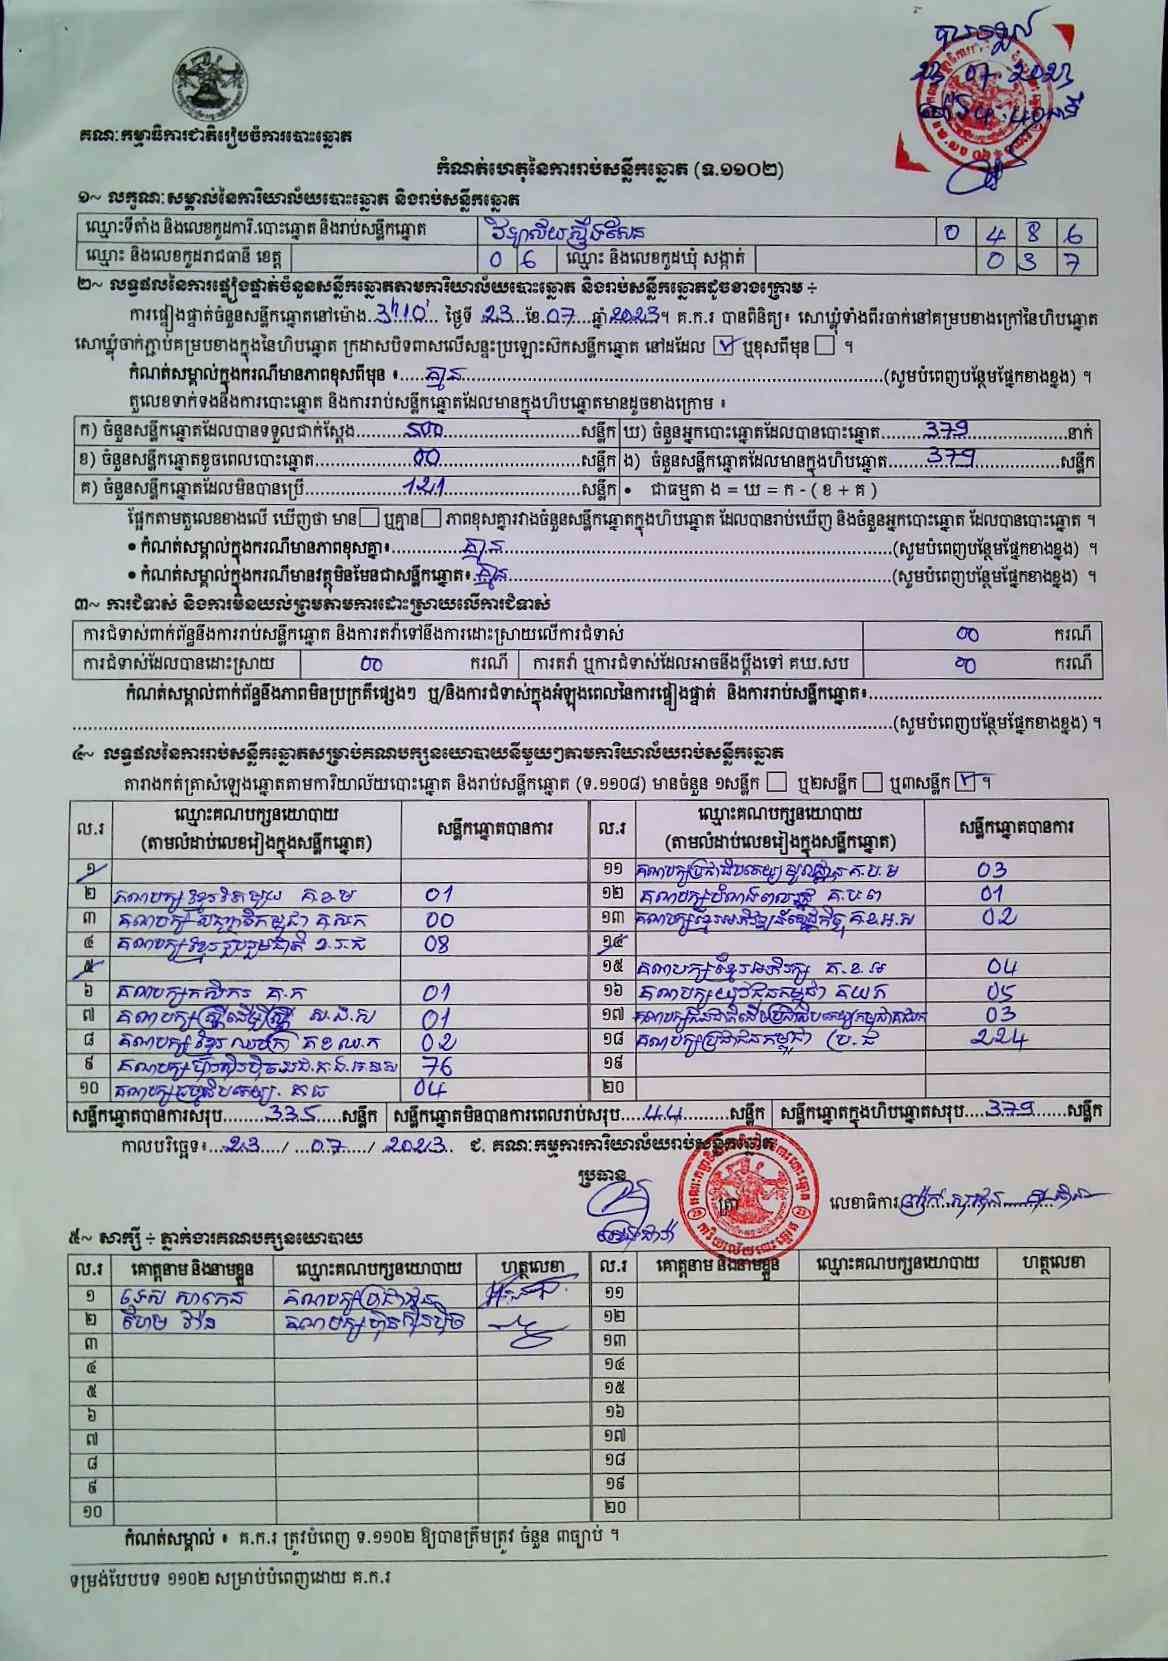 បានទទួល
23 07 2023
គណៈកម្មាធិការជាតិរៀបចំការបោះឆ្នោត
កំណត់ហេតុនៃការរាប់សន្លឹកឆ្នោត (ទ.១១០២)
១~ លក្ខណៈសម្គាល់នៃការិយាល័យបោះឆ្នោត និងរាប់សន្លឹកឆ្នោត
ឈ្មោះទីតាំង និងលេខកូដការិ.បោះឆ្នោត និងរាប់សន្លឹកឆ្នោត វិទ្យាល័យស្ទឹងសែន 0 4 8 6
ឈ្មោះ និងលេខកូដរាជធានី ខេត្ត 0 6 ឈ្មោះ និងលេខកូដឃុំ សង្កាត់ 0 3 7
២~ លទ្ធផលនៃការផ្ទៀងផ្ទាត់ចំនួនសន្លឹកឆ្នោតតាមការិយាល័យបោះឆ្នោត និងរាប់សន្លឹកឆ្នោតដូចខាងក្រោម ÷
ការផ្ទៀងផ្ទាត់ចំនួនសន្លឹកឆ្នោតនៅម៉ោង..3h10'... ថ្ងៃទី 23 ខែ 07 ឆ្នាំ 2023។ គ.ក.រ បានពិនិត្យ៖ សោឃ្លុំទាំងពីរចាក់នៅគម្របខាងក្រៅនៃហិបឆ្នោត
សោឃ្លុំចាក់ភ្ជាប់គម្របខាងក្នុងនៃហិបឆ្នោត ក្រដាសបិទពាសលើសន្ទះប្រឡោះស៊កសន្លឹកឆ្នោត នៅដដែល ☑ ឬខុសពីមុន ☐ ។
កំណត់សម្គាល់ក្នុងករណីមានភាពខុសពីមុន ៖......គ្មាន......(សូមបំពេញបន្ថែមផ្នែកខាងខ្នង) ។
តួលេខទាក់ទងនឹងការបោះឆ្នោត និងការរាប់សន្លឹកឆ្នោតដែលមានក្នុងហិបឆ្នោតមានដូចខាងក្រោម ៖
ក) ចំនួនសន្លឹកឆ្នោតដែលបានទទួលជាក់ស្តែង......500......សន្លឹក ឃ) ចំនួនអ្នកបោះឆ្នោតដែលបានបោះឆ្នោត......379......នាក់
ខ) ចំនួនសន្លឹកឆ្នោតខូចពេលបោះឆ្នោត......00......សន្លឹក ង) ចំនួនសន្លឹកឆ្នោតដែលមានក្នុងហិបឆ្នោត......379......សន្លឹក
គ) ចំនួនសន្លឹកឆ្នោតដែលមិនបានប្រើ......121......សន្លឹក • ជាធម្មតា ង = ឃ = ក - ( ខ + គ )
ផ្អែកតាមតួលេខខាងលើ ឃើញថា មាន☐ ឬគ្មាន☐ ភាពខុសគ្នារវាងចំនួនសន្លឹកឆ្នោតក្នុងហិបឆ្នោត ដែលបានរាប់ឃើញ និងចំនួនអ្នកបោះឆ្នោត ដែលបានបោះឆ្នោត ។
• កំណត់សម្គាល់ក្នុងករណីមានភាពខុសគ្នា៖......គ្មាន......(សូមបំពេញបន្ថែមផ្នែកខាងខ្នង) ។
• កំណត់សម្គាល់ក្នុងករណីមានវត្ថុមិនមែនជាសន្លឹកឆ្នោត៖ គ្មាន......(សូមបំពេញបន្ថែមផ្នែកខាងខ្នង) ។
៣~ ការជំទាស់ និងការមិនយល់ព្រមតាមការដោះស្រាយលើការជំទាស់
ការជំទាស់ពាក់ព័ន្ធនឹងការរាប់សន្លឹកឆ្នោត និងការតវ៉ាទៅនឹងការដោះស្រាយលើការជំទាស់ 00 ករណី
ការជំទាស់ដែលបានដោះស្រាយ 00 ករណី ការតវ៉ា ឬការជំទាស់ដែលអាចនឹងប្តឹងទៅ គឃ.សប 00 ករណី
កំណត់សម្គាល់ពាក់ព័ន្ធនឹងភាពមិនប្រក្រតីផ្សេងៗ ឬ/និងការជំទាស់ក្នុងអំឡុងពេលនៃការផ្ទៀងផ្ទាត់ និងការរាប់សន្លឹកឆ្នោត៖......
......(សូមបំពេញបន្ថែមផ្នែកខាងខ្នង) ។
៤~ លទ្ធផលនៃការរាប់សន្លឹកឆ្នោតសម្រាប់គណបក្សនយោបាយនីមួយៗតាមការិយាល័យរាប់សន្លឹកឆ្នោត
តារាងកត់ត្រាសំឡេងឆ្នោតតាមការិយាល័យបោះឆ្នោត និងរាប់សន្លឹកឆ្នោត (ទ.១១០៨) មានចំនួន ១សន្លឹក ☐ ឬ២សន្លឹក ☐ ឬ៣សន្លឹក ☑ ។
ល.រ ឈ្មោះគណបក្សនយោបាយ (តាមលំដាប់លេខរៀងក្នុងសន្លឹកឆ្នោត) សន្លឹកឆ្នោតបានការ ល.រ ឈ្មោះគណបក្សនយោបាយ (តាមលំដាប់លេខរៀងក្នុងសន្លឹកឆ្នោត) សន្លឹកឆ្នោតបានការ
១ ១១ គណបក្សប្រជាធិបតេយ្យមូលដ្ឋាន គ.ប.ម 03
២ គណបក្សខ្មែរ គ.ខ.ម 01 ១២ គណបក្សបំណងពលរដ្ឋ គ.ប.ព 01
៣ គណបក្សសញ្ជាតិកម្ពុជា គ.ស.ក 00 ១៣ គណបក្សខ្មែរអភិវឌ្ឍន៍សេដ្ឋកិច្ច គ.ខ.អ.ស 02
៤ គណបក្សខ្មែររួបរួមជាតិ ខ.រ.ជ 08 ១៤
៥ ១៥ គណបក្សខ្មែរអភិរក្ស គ.ខ.អ 04
៦ គណបក្សកសិករ គ.ក 01 ១៦ គណបក្សយុវជនកម្ពុជា គយក 05
៧ គណបក្សស្ត្រីដើម្បីស្ត្រី ស.ដ.ស 01 ១៧ 03
៨ គណបក្សខ្មែរឈប់ក្រ គ ខ ឈ.ក 02 ១៨ គណបក្សប្រជាជនកម្ពុជា ប្រ.ជ 224
៩ គណបក្សហ៊្វុនស៊ិនប៉ិច 76 ១៩
១០ គណបក្សធម្មាធិបតេយ្យ. គ ធ 04 ២០
សន្លឹកឆ្នោតបានការសរុប......335......សន្លឹក សន្លឹកឆ្នោតមិនបានការពេលរាប់សរុប....44......សន្លឹក សន្លឹកឆ្នោតក្នុងហិបឆ្នោតសរុប....379......សន្លឹក
កាលបរិច្ឆេទ៖...23..../ ...07..../ ..2023.. ជ. គណៈកម្មការការិយាល័យរាប់សន្លឹកឆ្នោត
ប្រធាន ត្រា លេខាធិការ
៥~ សាក្សី ÷ ភ្នាក់ងារគណបក្សនយោបាយ
ល.រ គោត្តនាម និងនាមខ្លួន ឈ្មោះគណបក្សនយោបាយ ហត្ថលេខា ល.រ គោត្តនាម និងនាមខ្លួន ឈ្មោះគណបក្សនយោបាយ ហត្ថលេខា
១ គណបក្សប្រជាជន ១១
២ គណបក្សហ៊្វុនស៊ិនប៉ិច ១២
៣ ១៣
៤ ១៤
៥ ១៥
៦ ១៦
៧ ១៧
៨ ១៨
៩ ១៩
១០ ២០
កំណត់សម្គាល់ ៖ គ.ក.រ ត្រូវបំពេញ ទ.១១០២ ឱ្យបានត្រឹមត្រូវ ចំនួន ៣ច្បាប់ ។
ទម្រង់បែបបទ ១១០២ សម្រាប់បំពេញដោយ គ.ក.រ